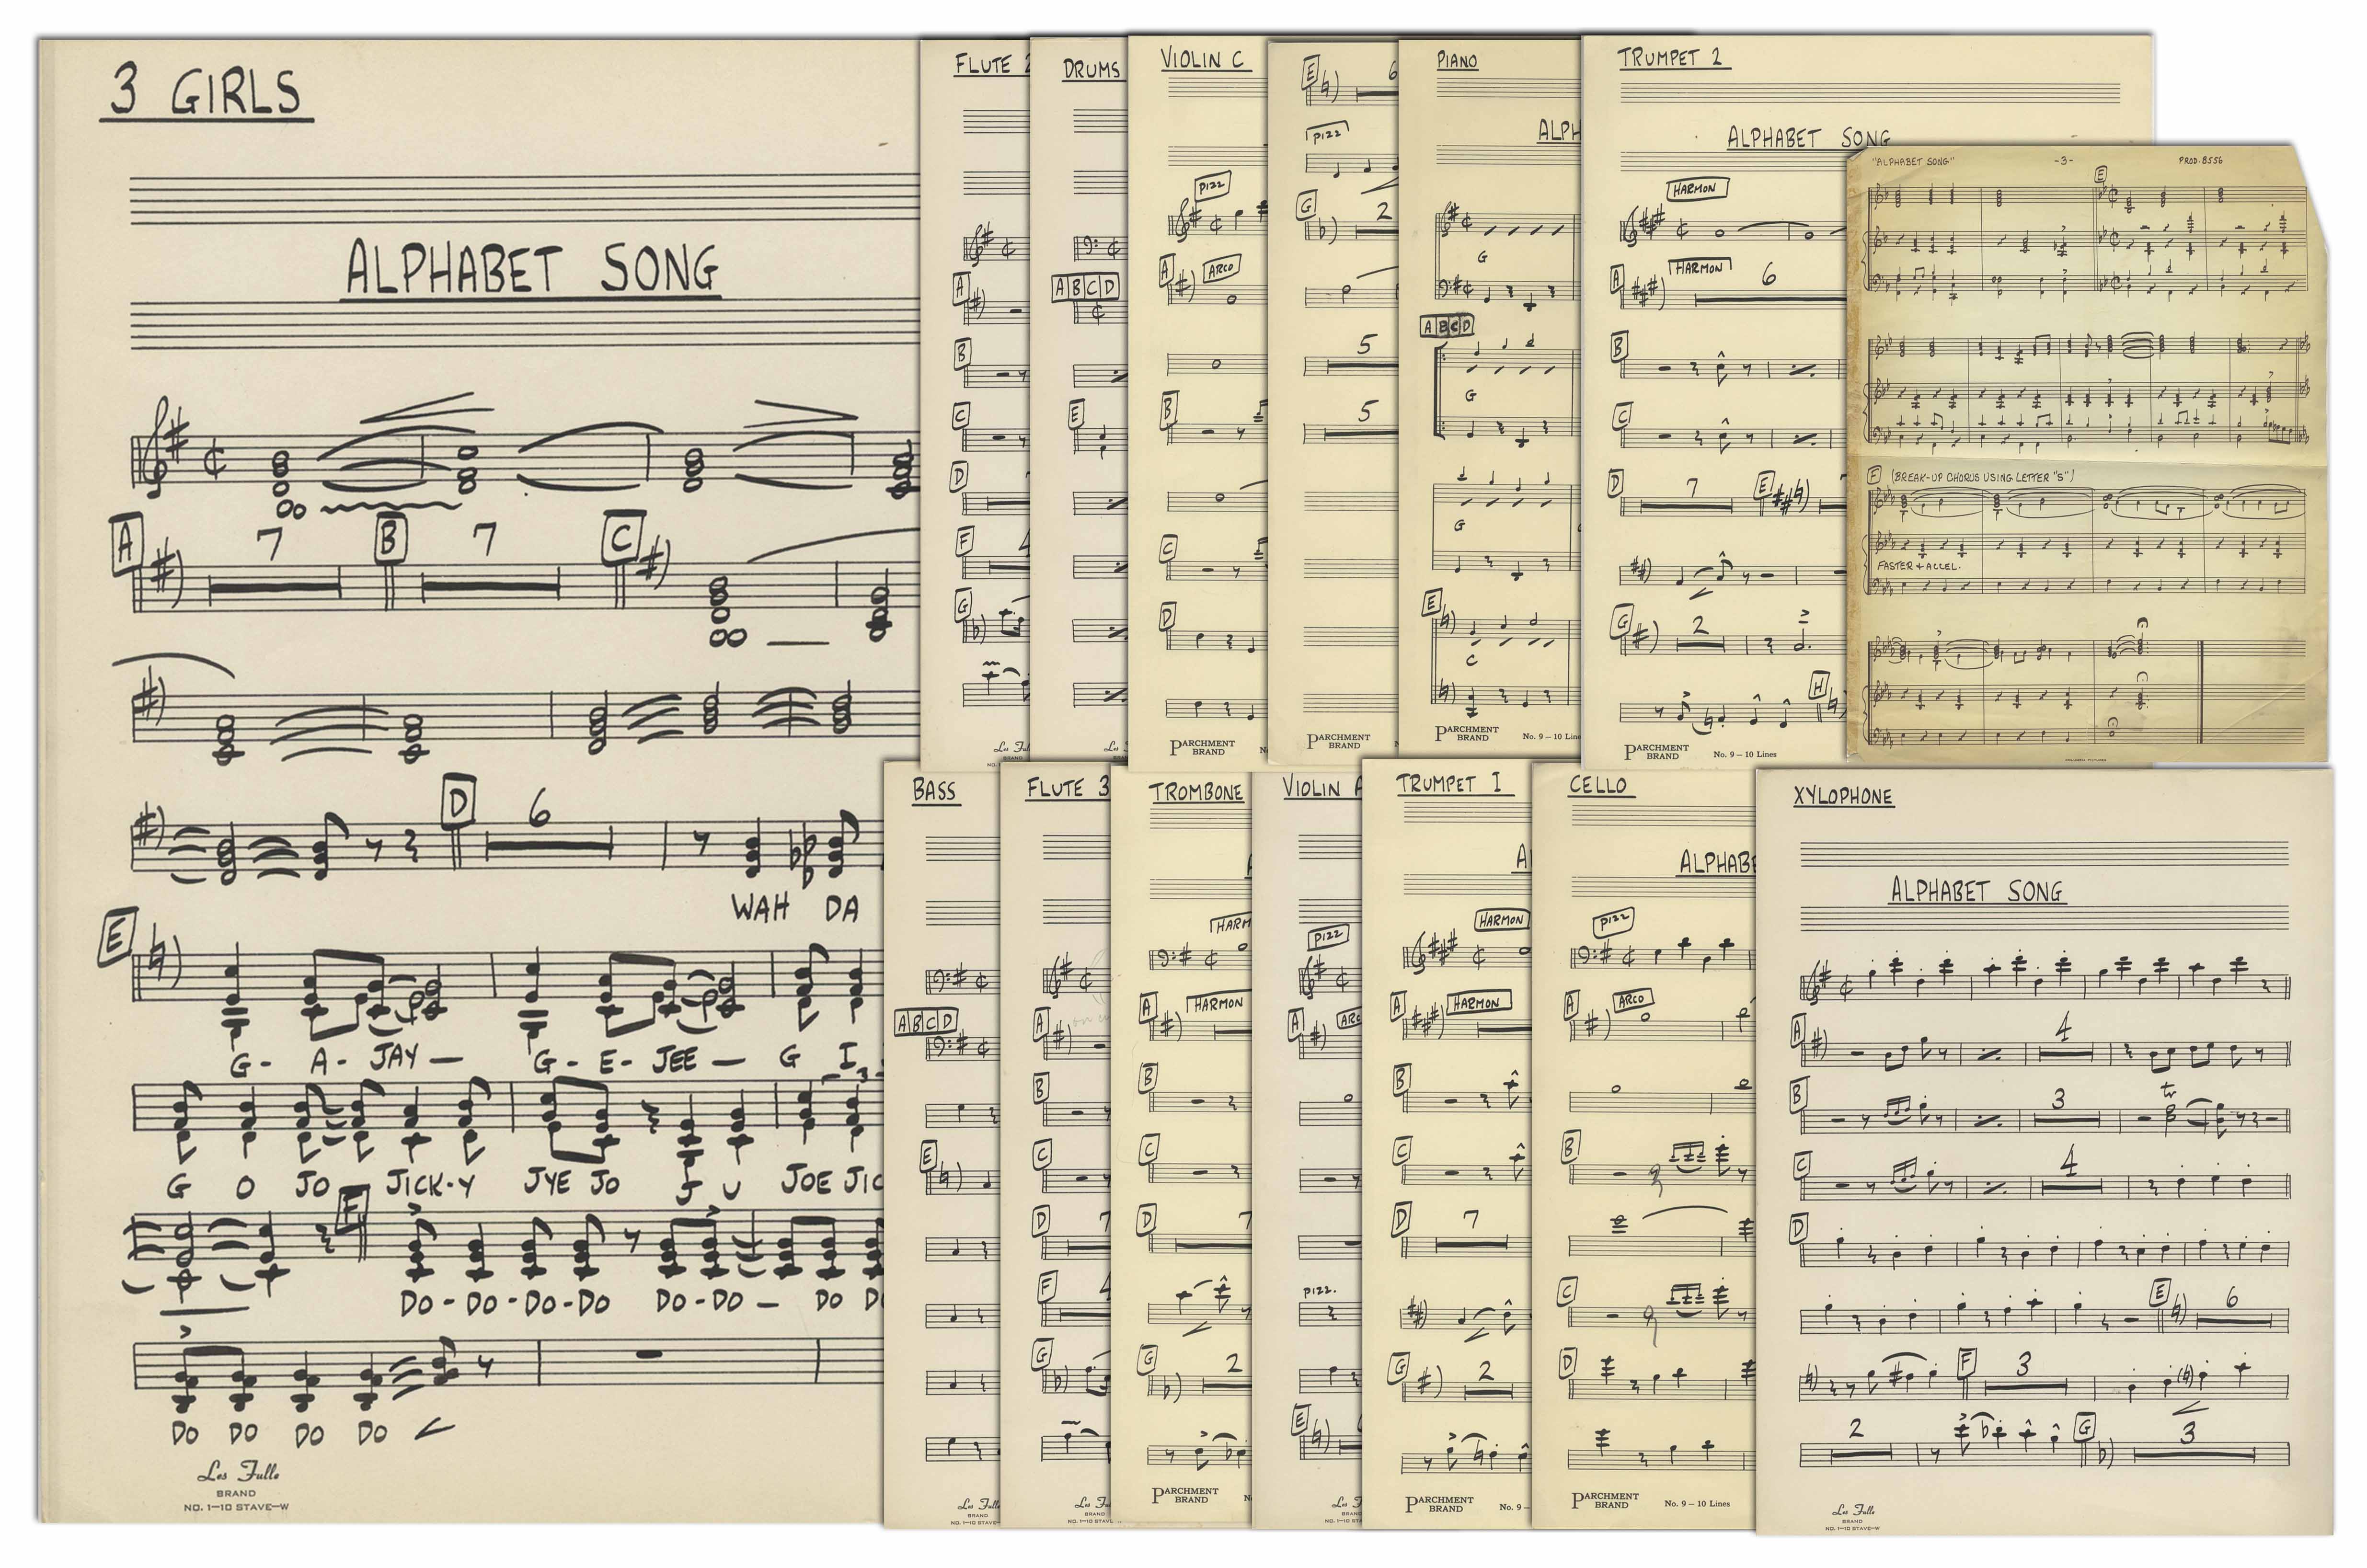 3 GIRLS
ALPHABET SONG
A 7 B 7 C
D 6
WAH DA
E
G - A - JAY — G - E - JEE — G I
3
G O JO JICK-Y JYE JO J U JOE JIC
F
DO - DO - DO - DO DO - DO — DO DO
DO DO DO DO
Les Fulle
BRAND
NO. 1—10 STAVE—W
FLUTE 2
A
B
C
D 7
F 4
G
Les Ful
BRAND
NO. 1—10
DRUMS
A B C D
E
Les
VIOLIN C
PIZZ
A ARCO
B
C
D
PARCHMENT
BRAND
E 6
PIZZ
G 2
5
5
PARCHMENT
BRAND
PIANO
ALPH
G
A B C D
G
G
E
C
PARCHMENT
BRAND
No. 9 — 10 Line
TRUMPET 2
ALPHABET SONG
HARMON
A HARMON 6
B
C
D 7 E
G 2
H
PARCHMENT
BRAND
No. 9 — 10 Lines
"ALPHABET SONG" -3- PROD. 8556
E
F (BREAK-UP CHORUS USING LETTER "S")
FASTER & ACCEL.
COLUMBIA PICTURES
BASS
A B C D
E
Les Full
BRAND
NO. 1—10 STAVE
FLUTE 3
A
B
C
D 7
F 4
G
Les Fu
BRAND
NO. 1—10 S
TROMBONE
HARM
A HARMON
B
C
D 7
G 2
PARCHMENT
BRAND
VIOLIN A
PIZZ
A ARC
PIZZ.
E
Les Ful
BRAND
NO. 1—10 ST
TRUMPET I
A
HARMON
A HARMON
B
C
D 7
G 2
PARCHMENT
BRAND
No. 9 —
CELLO
ALPHABE
PIZZ
A ARCO
B
C
D
PARCHMENT
BRAND
No. 9 — 10 Lines
XYLOPHONE
ALPHABET SONG
A 4
B 3 tr
C 4
D
E 6
F 3
2 G 3
Les Fulle
BRAND
NO. 1—10 STAVE—W